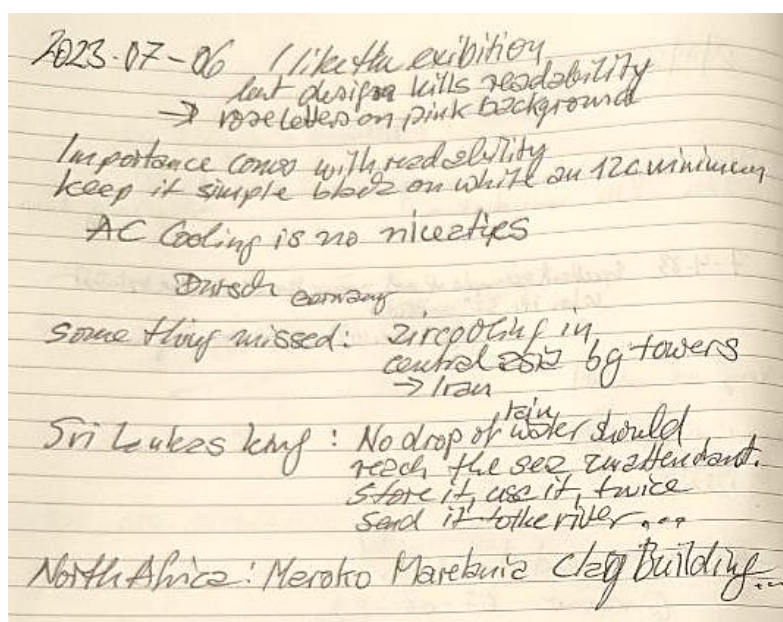 2023-07-06 I like the exibition
but design kills readability
→ rose letters on pink background
Importance comes with readability
keep it simple black on white an 12c minimum
AC Cooling is no
Germany
Some thing missed: aircooling in
central asia by towers
→ Iran
Sri Lankas king: No drop of rain water should
reach the sea unattendant.
Store it, use it, twice
Send it to the river...
North Africa: Maroko Maretania Clay Building...